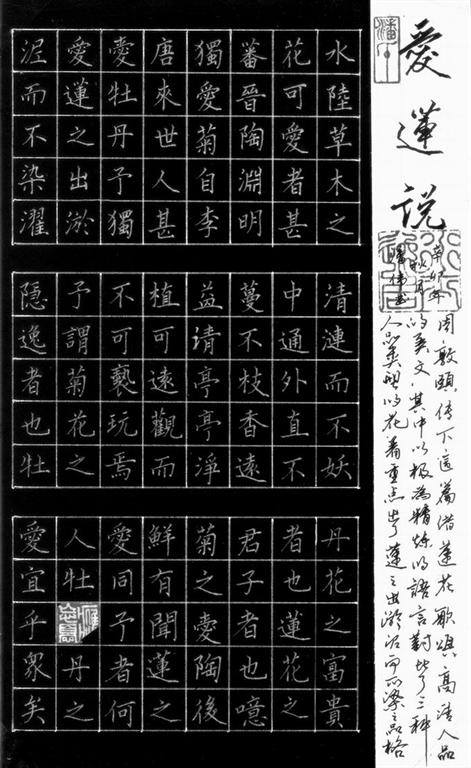 愛蓮说
辛卯年
周敦頤传下這篇借蓮花歌頌高洁人品
的美文,其中以极为精炼的語言對比了三种
人品类型的花着重点出了蓮之出淤泥而不染之品格
水陸草木之
花可愛者甚
蕃晉陶淵明
獨愛菊自李
唐來世人甚
愛牡丹予獨
愛蓮之出淤
泥而不染濯
清漣而不妖
中通外直不
蔓不枝香遠
益清亭亭淨
植可遠觀而
不可褻玩焉
予謂菊花之
隱逸者也牡
丹花之富貴
者也蓮花之
君子者也噫
菊之愛陶後
鮮有聞蓮之
愛同予者何
人牡丹之
愛宜乎眾矣